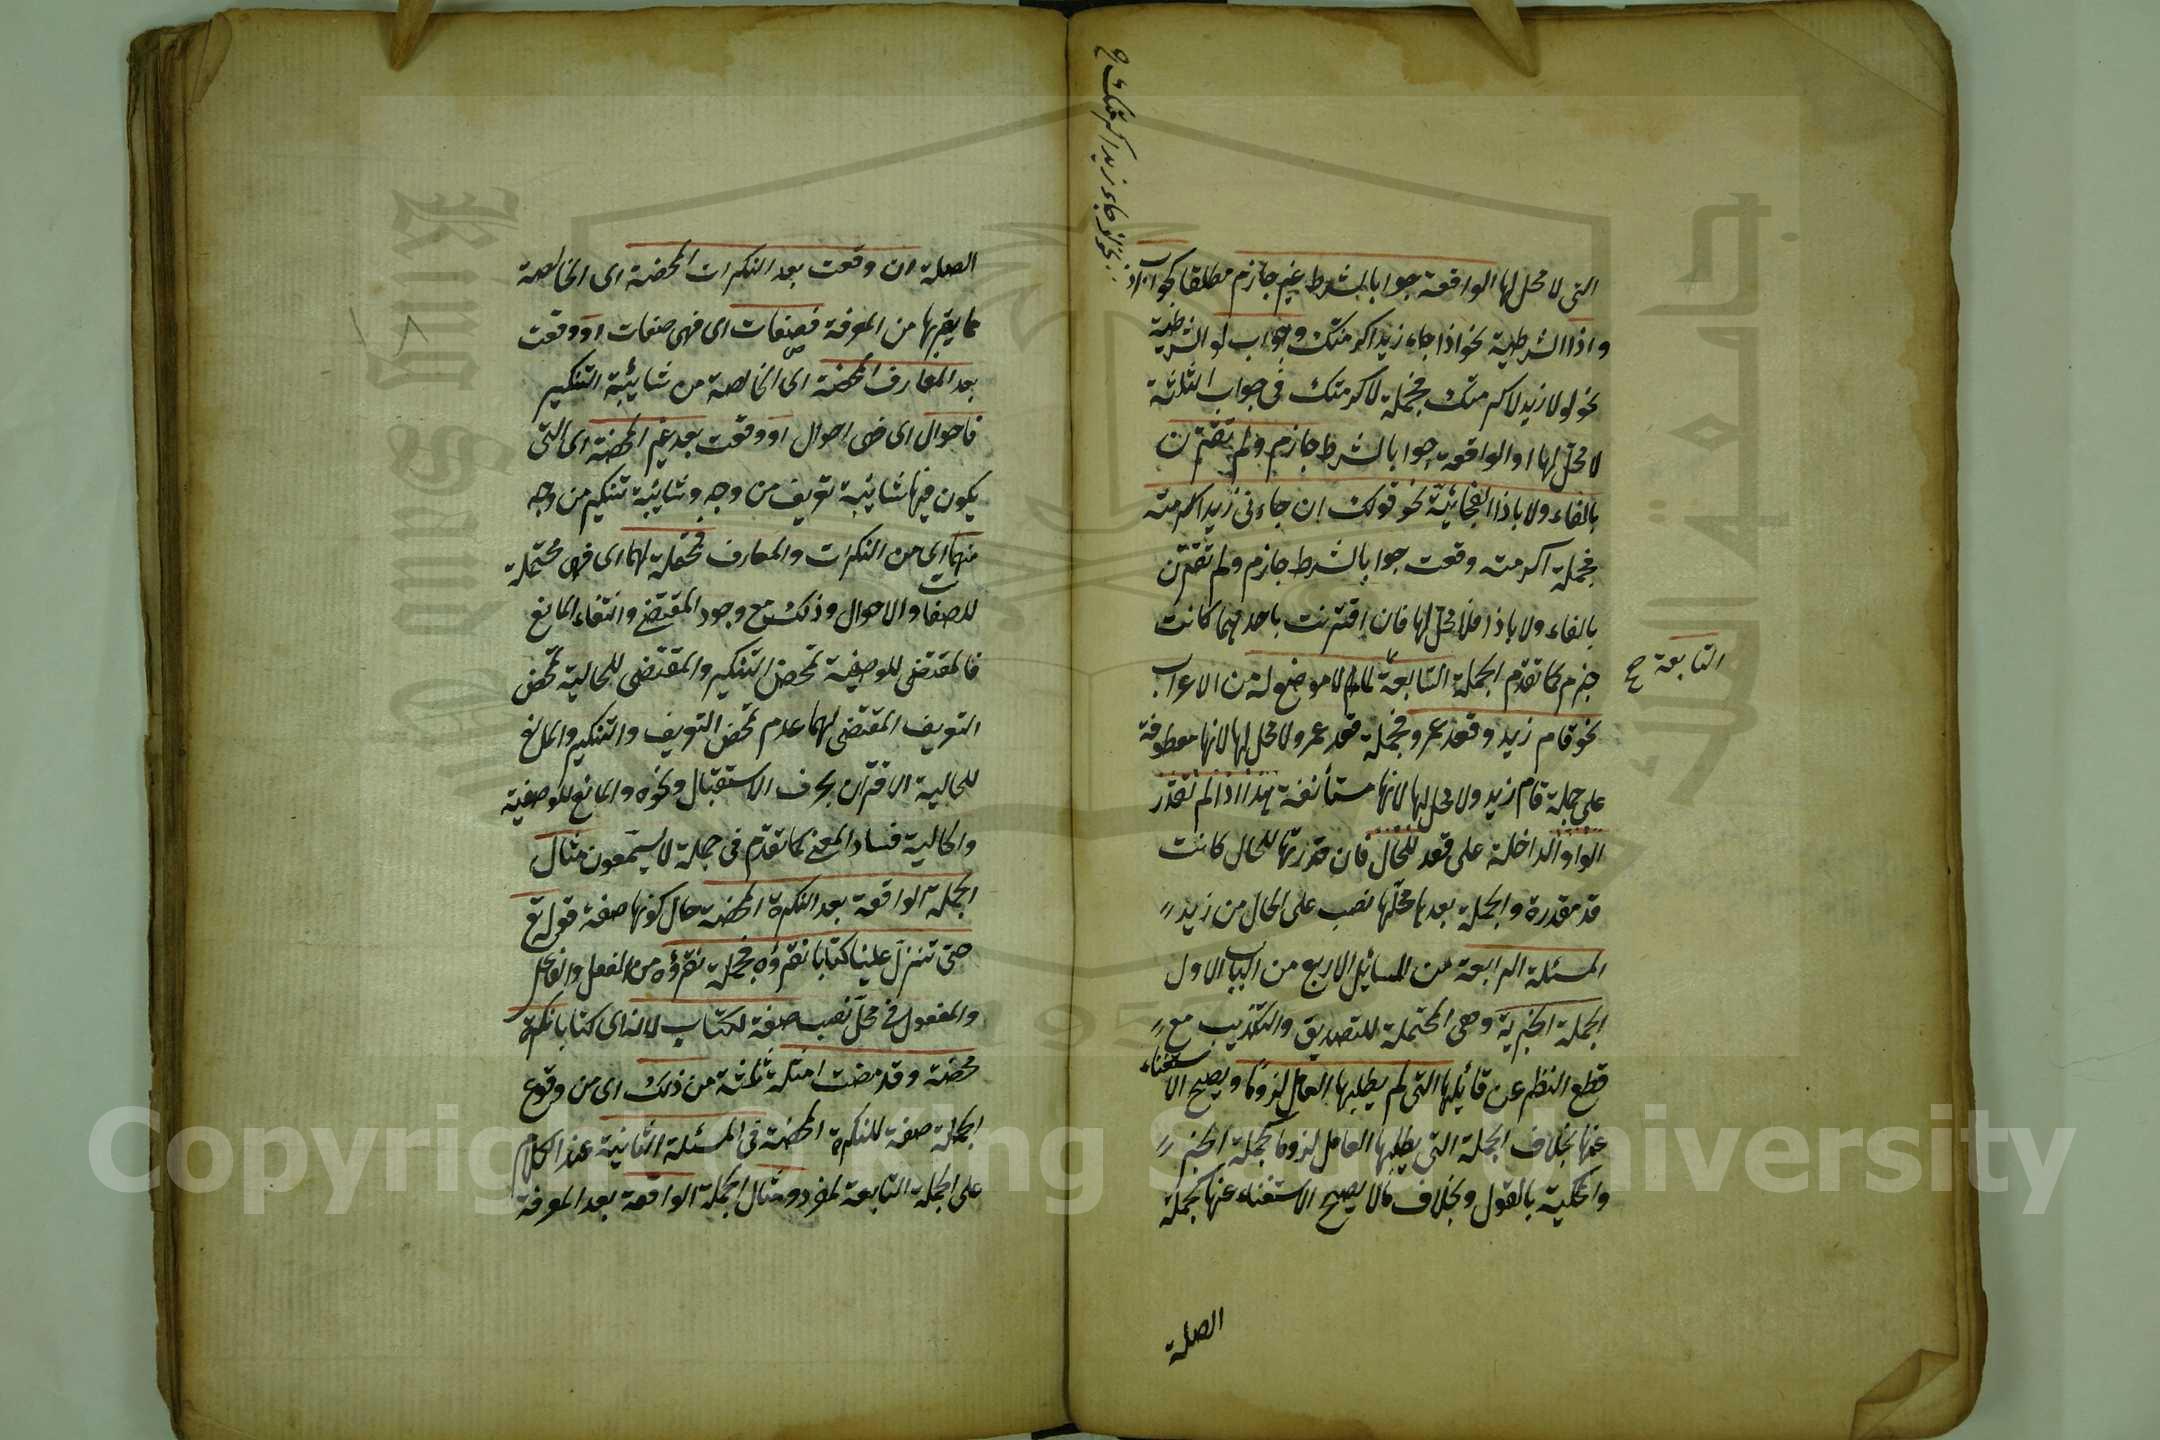 التى لا محل لها الواقعة جوابا لشرط غير جازم مطلقا كجواب اذ
واذا الشرطية نحو اذا جاء زيد اكرمتك وجواب لو الشرطية
نحو لولا زيد لاكرمتك فجملة لاكرمتك فى جواب الثلثة
لا محل لها او الواقعة جوابا لشرط جازم ولم تقترن
بالفاء ولا باذا الفجائية نحو قولك ان جاءنى زيد اكرمته
فجملة اكرمته وقعت جوابا لشرط جازم ولم تقترن
بالفاء ولا باذا فلا محل لها فان اقترنت باحدهما كانت
جزم كما تقدم الجملة السابعة لما لا موضع له من الاعراب
التابعة صح
نحو قام زيد وقعد عمرو فجملة قعد عمرو لا محل لها لانها معطوفة
على جملة قام زيد ولا محل لها لانها مستأنفة هذا اذا لم تقدر
الواو الداخلة على قعد للحال فان قدرتها للحال كانت
قد مقدرة والجملة بعدها محلها نصب على الحال من زيد
المسئلة الرابعة من المسائل الاربع من الباب الاول
الجملة الخبرية وهى المحتملة للتصديق والتكذيب مع
قطع النظر عن قائلها التى لم يطلبها العامل لزوما ويصح الاستغناء
عنها بخلاف الجملة التى يطلبها العامل لزوما كجملة الخبر
والمحكية بالقول وبخلاف ما لا يصح الاستغناء عنها كجملة
الصلة
الصلة ان وقعت بعد النكرات المحضة اى الخالصة
مما يقربها من المعرفة فصفات اى فهى صفات او وقعت
بعد المعارف المحضة اى الخالصة من شائبة التنكير
فاحوال اى فهى احوال او وقعت بعد غير المحضة اى التى
يكون فيها شائبة تعريف من وجه وشائبة تنكير من وجه
منهما اى من النكرات والمعارف فمحتملة لهما اى فهى محتملة
للصفات والاحوال وذلك مع وجود المقتضى وانتفاء المانع
فالمقتضى للوصفية تمحض التنكير والمقتضى للحالية تمحض
التعريف المقتضى لهما عدم تمحض التعريف والتنكير والمانع
للحالية الاقتران بحرف الاستقبال ونحوه والمانع للوصفية
والحالية فساد المعنى كما تقدم فى جملة لا يسمعون مثال
الجملة الواقعة بعد النكرة المحضة حال كونها صفة قوله تع
حتى تنزل علينا كتابا نقرؤه فجملة نقرؤه من الفعل والفاعل
والمفعول فى محل نصب صفة لكتاب لانه اى كتابا نكرة
محضة وقد مضت امثلة ثلثة من ذلك اى من وقوع
الجملة صفة للنكرة المحضة فى المسئلة الثانية عند الكلام
على الجملة التابعة لمفرد ومثال الجملة الواقعة بعد المعرفة
Copyright © King Saud University